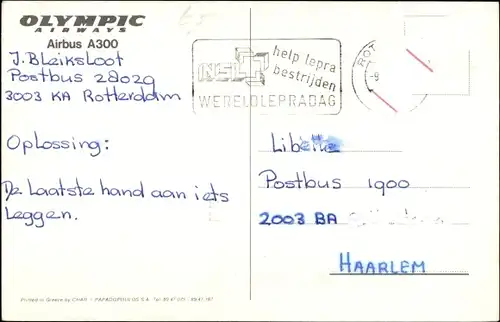 OLYMPIC
AIRWAYS
Airbus A300
J. Bleiksloot
Postbus 28029
3003 KA Rotterdam
Oplossing:
De Laatste hand aan iets
Leggen.
NSL
help lepra
bestrijden
WERELDLEPRADAG
ROT
Libelle
Postbus 1900
2003 BA
HAARLEM
Printed in Greece by
PAPADOPOULOS S.A.